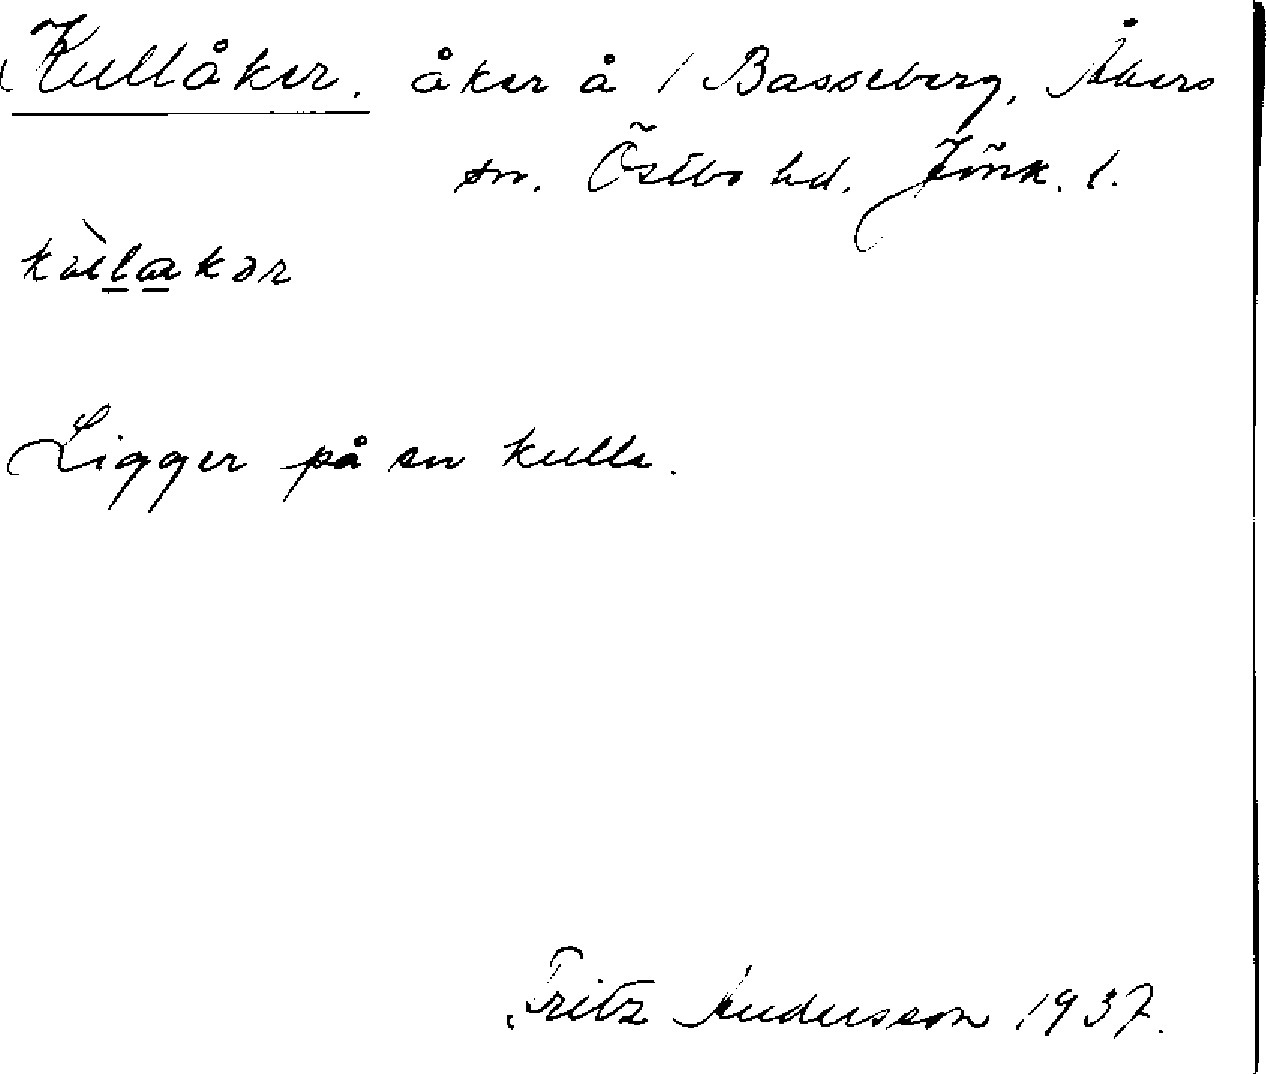 Kullåker. åker å / Basseberg, Åkers
sn. Östbo hd. Jönk. l.
Ligger på en kulle.
Fritz Andersson 1937.